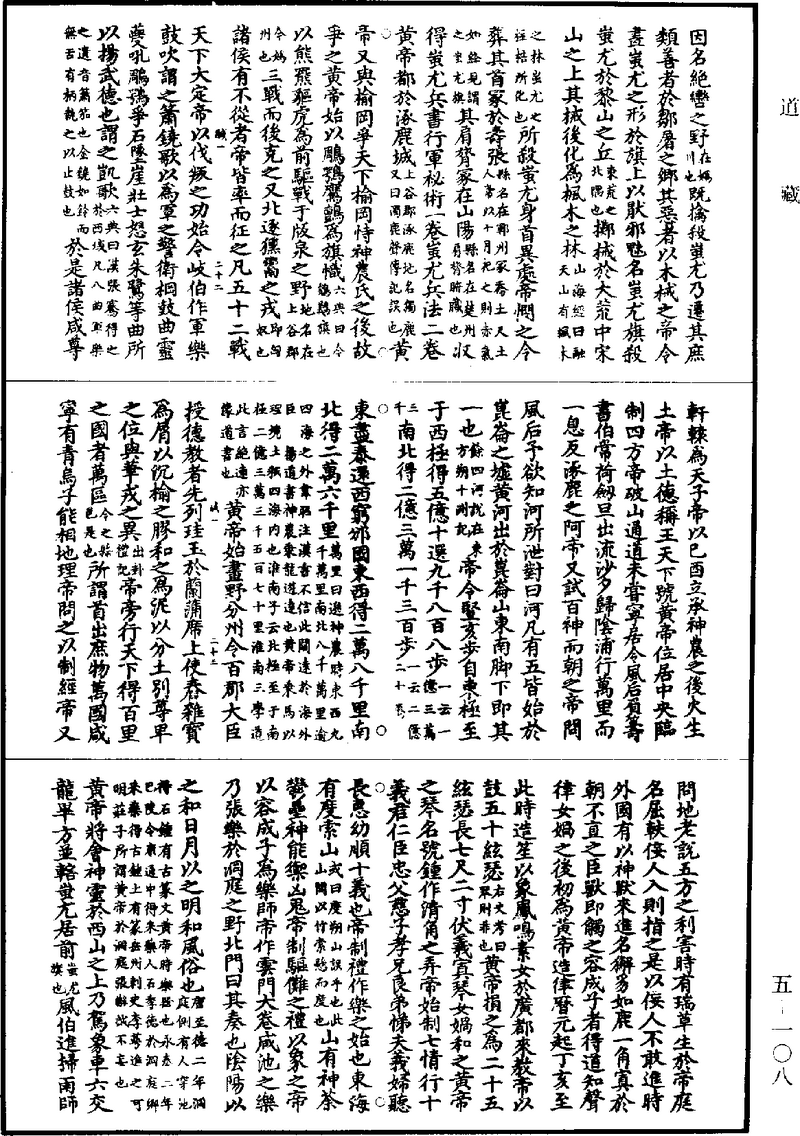 道藏
五－一〇八
因名絶轡之野在媯川也既擒殺蚩尤乃遷其庶
類善者於鄒屠之鄉其惡者以木械之帝令
畫蚩尤之形於旗上以厭邪魅名蚩尤旗殺
蚩尤於黎山之丘東荒之北隅也擲械於大荒中宋
山之上其械後化為楓木之林山海經曰融天山有楓木
之林蚩尤之桎梏所化也所殺蚩尤身首異處帝憫之令
葬其首冢於壽張縣名在鄆州冢高七尺土人常以十月祀之則赤氣
如絳見謂之蚩尤旗其肩髀冢在山陽縣名在楚州肩髀臟也收
得蚩尤兵書行軍秘術一卷蚩尤兵法二卷
黃帝都於涿鹿城上谷郡涿鹿地名獨鹿又曰濁鹿聲傳記誤也黃
帝又與榆岡爭天下榆岡恃神農氏之後故
爭之黃帝始以鵰鶚鷹鸇為旗幟六典曰今鶡鷄旗也
以熊羆貙虎為前驅戰于版泉之野地名在上谷郡
今媯州也三戰而後克之又北逐獯鬻之戎即匈奴也
諸侯有不從者帝皆率而征之凡五十二戰
天下大定帝以伐叛之功始令岐伯作軍樂
鼓吹謂之簫鐃歌以為軍之警衛棡鼓曲靈
夔吼鵰鶚爭石墜崖壯士怒玄朱鷺等曲所
以揚武德也謂之凱歌六典曰漢張騫得之於西域凡八曲軍樂
之遺音簫笳也金鐃如鈴而無舌有柄執之以止鼓也於是諸侯咸尊
軒轅為天子帝以己酉立承神農之後火生
土帝以土德稱王天下號黃帝位居中央臨
制四方帝破山通道未嘗寧居令風后負籌
書伯常荷劒旦出流沙夕歸陰浦行萬里而
一息反涿鹿之阿帝又試百神而朝之帝問
風后予欲知河所泄對曰河凡有五皆始於
崑崙之墟黃河出於崑崙山東南脚下即其
一也餘四河說在東方朔十洲記帝令竪亥步自東極至
于西極得五億十選九千八百八步一云一億三萬
南北得二億三萬一千三百步一云二億二十
東盡泰遠西窮邠國東西得二萬八千里南
北得二萬六千里萬里曰選神農時東西九千萬里南北八千萬里逾
四海之外韋昭注漢書不信此闊遠於海外
黃帝始畫野分州令百郡大臣
授德教者先列珪玉於蘭蒲席上使舂雜寶
為屑以沉榆之膠和之為泥以分土別尊卑
之位與華戎之異出封禪記帝旁行天下得百里
之國者萬區今之縣邑是也所謂首出庶物萬國咸
寧有青烏子能相地理帝問之以制經帝又
問地老說五方之利害時有瑞草生於帝庭
名屈軼佞人入則指之是以佞人不敢進時
外國有以神獸來進名獬豸如鹿一角寘於
朝不直之臣獸即觸之容成子者得道知聲
律女媧之後初為黃帝造律曆元起丁亥至
此時造笙以象鳳鳴素女於廣都來教帝以
鼓五十絃瑟黃帝損之為二十五
絃瑟長七尺二寸伏羲寘琴女媧和之黃帝
之琴名號鍾作清角之弄帝始制七情行十
義君仁臣忠父慈子孝兄良弟悌夫義婦聽
長惠幼順十義也帝制禮作樂之始也東海
有度索山或曰度朔山訛乎也此山間以竹索懸而度也山有神荼
鬱壘神能禦凶鬼帝制驅儺之禮以象之帝
以容成子為樂師帝作雲門大卷咸池之樂
乃張樂於洞庭之野北門曰其奏也陰陽以
之和日月以之明和風俗也唐至德二年洞庭側有人穿池
得石鍾有古篆文黃帝時樂器也永泰二年
黃帝將會神靈於西山之上乃駕象車六交
龍畢方並轄蚩尤居前蚩尤旗也風伯進掃雨師